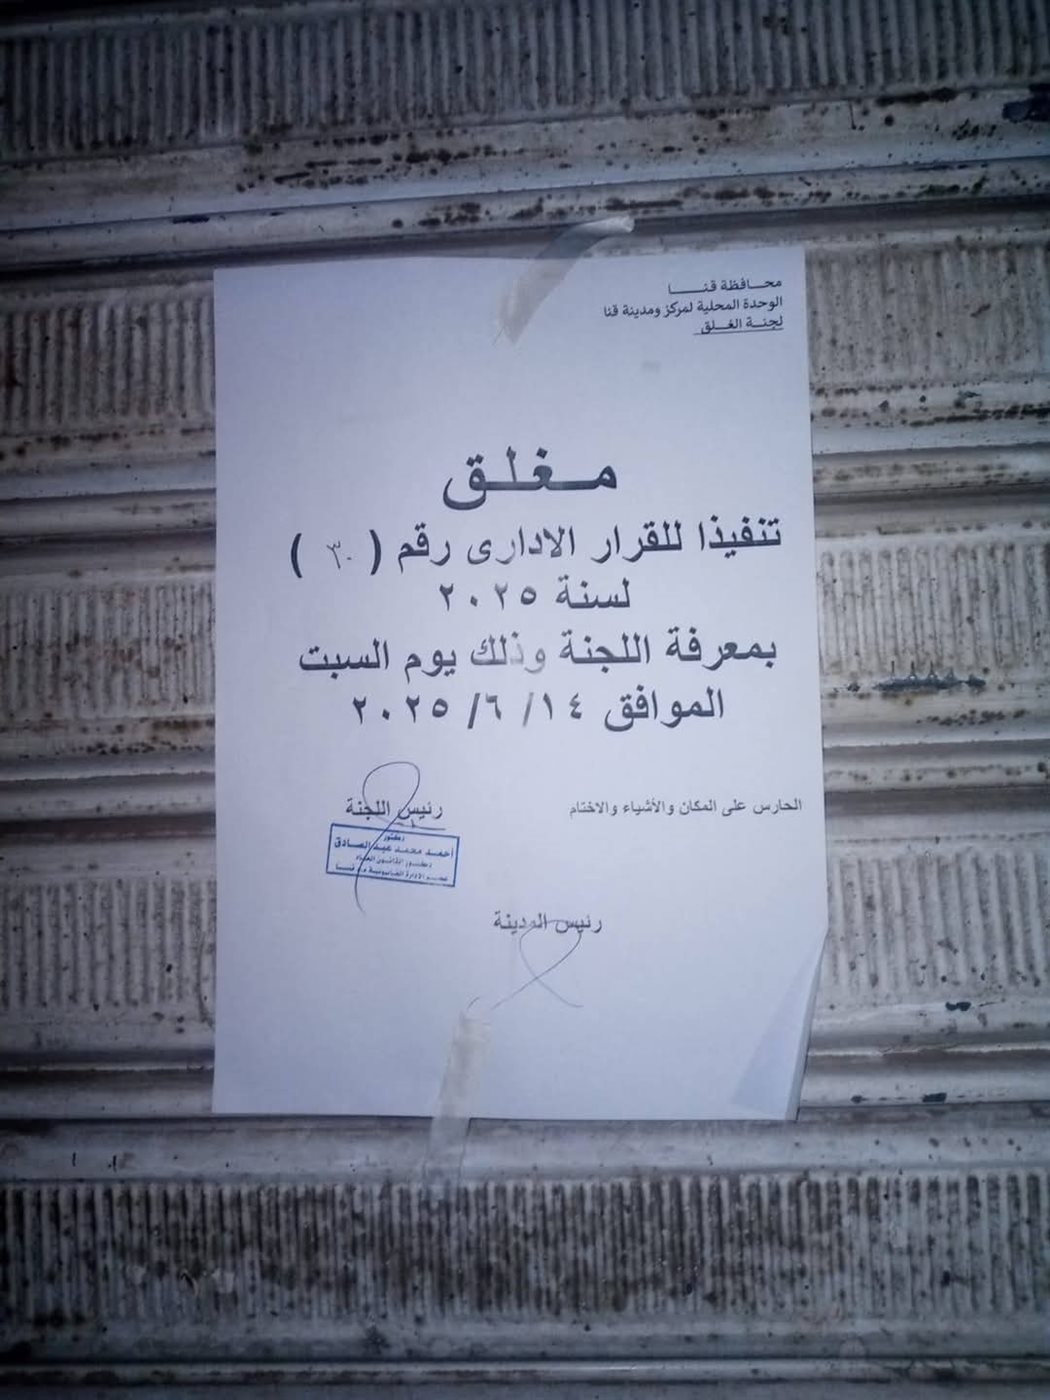 محافظة قنا
الوحدة المحلية لمركز ومدينة قنا
لجنة الغلق
مغلق
تنفيذا للقرار الادارى رقم ( ٣٠ )
لسنة ٢٠٢٥
بمعرفة اللجنة وذلك يوم السبت
الموافق ١٤/ ٦/ ٢٠٢٥
الحارس على المكان والأشياء والاختام
رئيس اللجنة
دكتور
أحمد محمد عبد الصادق
دكتور القانون العام
رئيس المدينة